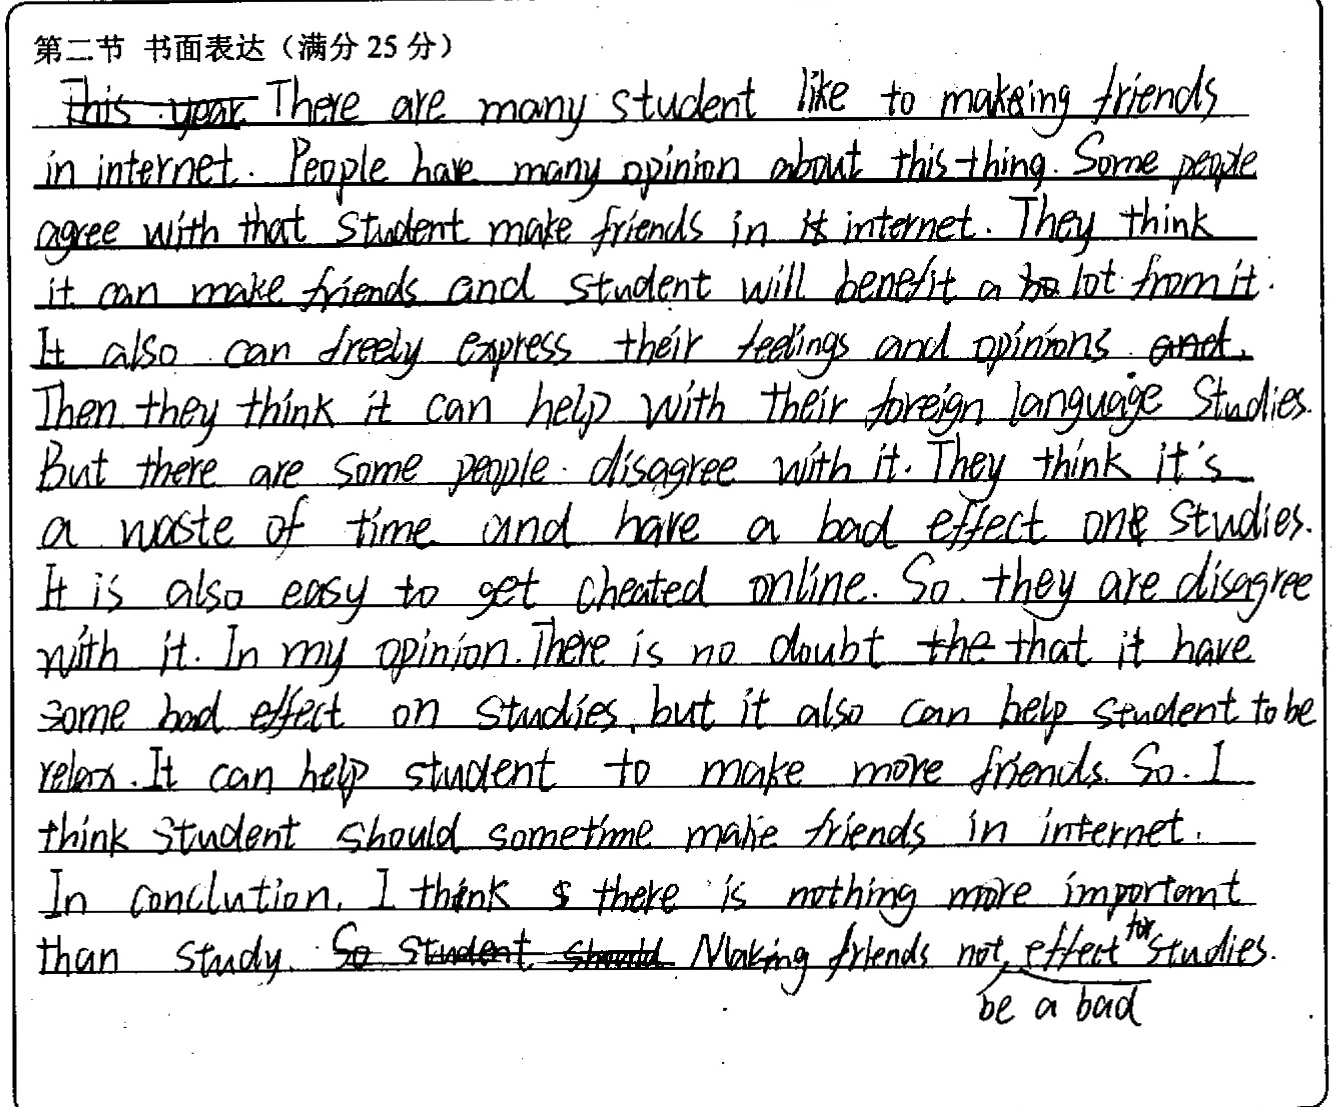 第二节 书面表达（满分 25 分）
This year There are many student like to makeing friends
in internet. People have many opinion about this thing. Some people
agree with that student make friends in it internet. They think
it can make friends and student will benefit a lot from it.
It also can freely express their feelings and opinions and.
Then they think it can help with their foreign language Studies.
But there are some people disagree with it. They think it's
a waste of time and have a bad effect one studies.
It is also easy to get cheated online. So. they are disagree
with it. In my opinion. There is no doubt the that it have
some bad effect on studies, but it also can help student to be
relax. It can help student to make more friends. So. I
think student should sometime make friends in internet.
In conclution, I think there is nothing more important
than study. So student should Making friends not be a bad effect for studies.